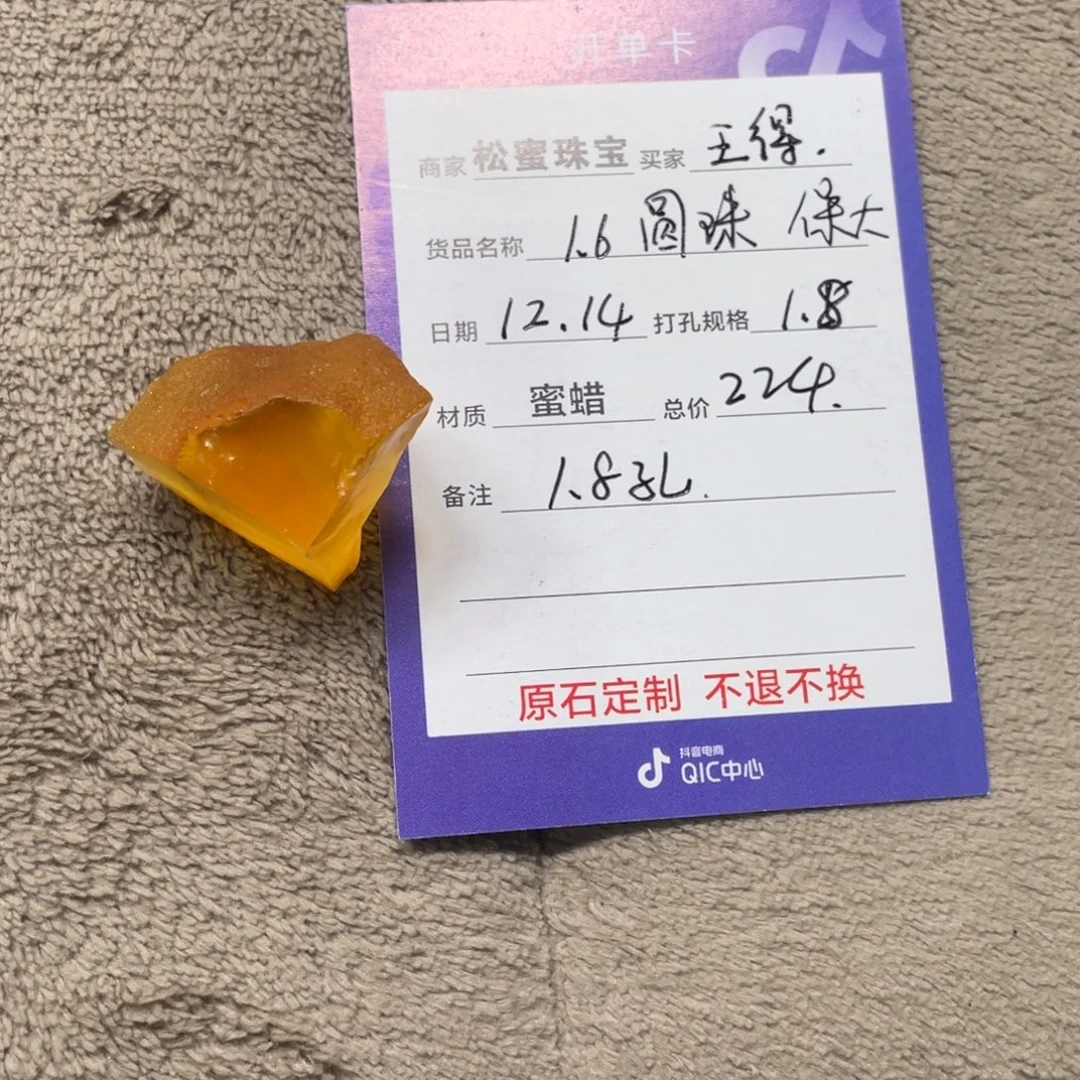 开单卡
商家 松蜜珠宝 买家 王得.
货品名称 1.6 圆珠 保大
日期 12.14 打孔规格 1.8
材质 蜜蜡 总价 224.
备注 1.8孔.
原石定制 不退不换
抖音电商
QIC中心